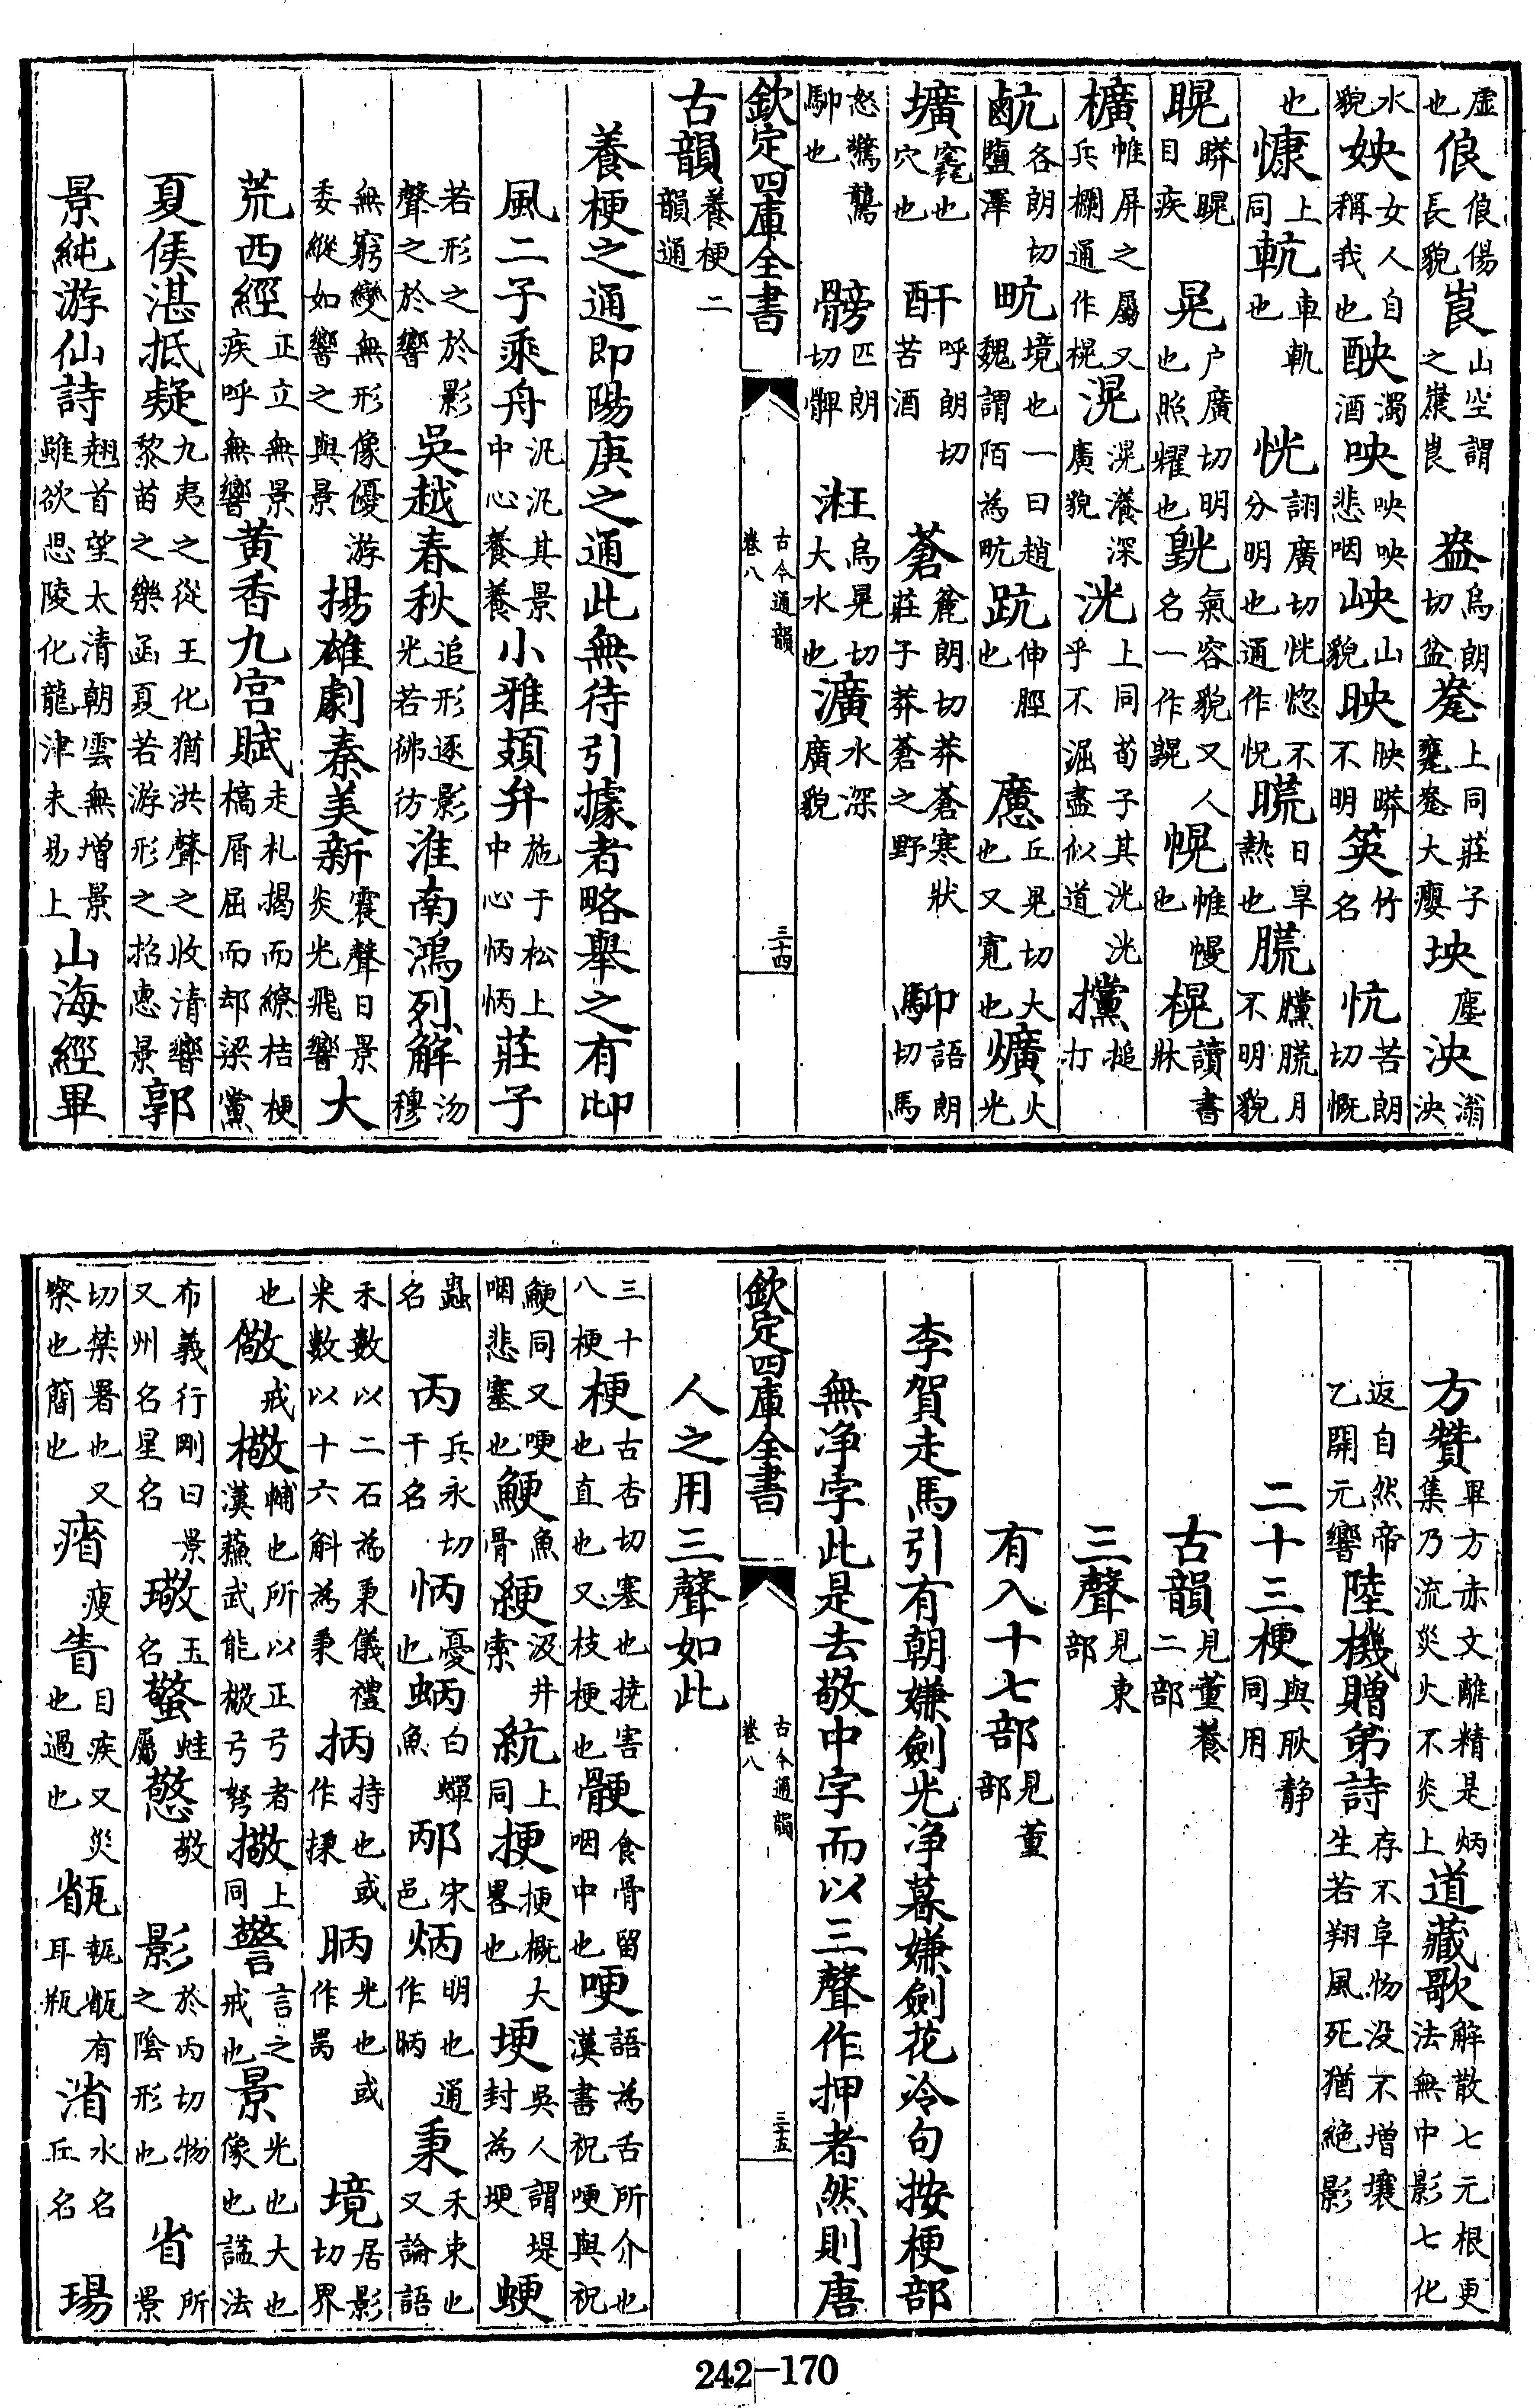 虚也俍俍偒長貌崀山空謂之㝩崀盎烏朗切盆𤮀上同莊子甕𤮀大癭坱塵泱滃泱
水貌姎女人自稱我也醠濁酒咉咉咉悲咽岟山貌映䀮不明䇦竹名忼苦朗切慨
也慷上同䡉車軌也恍詡廣切恍惚不分明也通作怳㬻日旱熱也朚月不明貌
晄目疾晃户廣切明也照耀也䵃氣容貌又人名一作幌帷幔也榥讀書牀
櫎帷屏之屬又兵欄通作榥滉滉瀁深廣貌洸上同荀子其洸洸乎不淈盡似道攩搥打
䴚各朗切鹽澤㽘境也一曰趙魏謂陌為㽘䟘伸脛也懬丘晃切大也又寬也爌火光
壙窀也穴也酐呼朗切苦酒蒼麄朗切莽蒼寒狀莊子莽蒼之野䭹語朗切馬
怒驚騺䭹也髈匹朗切髀汪烏晃切大水也瀇水深廣貌
欽定四庫全書 古今通韻 卷八 三十四
古韻養梗二韻通
養梗之通即陽庚之通此無待引據者略舉之有邶
風二子乘舟汎汎其景中心養養小雅頍弁施于松上中心怲怲莊子
若形之於影聲之於響吳越春秋追形逐影光若彿彷淮南鴻烈解沕穆
無窮變無形像優游委縱如響之與景揚雄劇秦美新震聲日景炎光飛響大
荒西經正立無景疾呼無響黄香九宫賦走札揭而繚桔梗槁屑屈而却梁黨
夏侯湛抵疑九夷之從王化猶洪聲之收清響黎苗之樂函夏若游形之招惠景郭
景純游仙詩翹首望太清朝雲無增景雖欲思陵化龍津未易上山海經畢
方贊畢方赤文離精是炳集乃流災火不炎上道藏歌解散七元根更法無中影七化
返自然帝乙開元響陸機贈弟詩存不阜物没不增壤生若翔風死猶絶影
二十三梗與耿静同用
古韻見董養二部
三聲見東部
有入十七部見董部
李賀走馬引有朝嫌劍光净暮嫌劍花冷句按梗部
無净字此是去敬中字而以三聲作押者然則唐
欽定四庫全書 古今通韻 卷八 三十五
人之用三聲如此
三十八梗梗古杏切塞也撓害也直也又枝梗也骾食骨留咽中也哽語為舌所介也漢書祝哽與祝
鯁同又哽咽悲塞也鯁魚骨綆汲井索統上同挭挭概大畧也埂吳人謂堤封為埂蜸
蟲名丙兵永切干名怲憂也蛃白蟫魚邴宋邑炳明也通作昞秉禾束也又論語
禾數以二石為秉儀禮米數以十六斛為秉抦持也或作捰昞光也或作昺境居影切界
也儆戒檠輔也所以正弓者漢蘇武能檠弓弩撒上同警言之戒也景光也大也像也諡法
布義行剛曰景又州名星名璥玉名蟼蛙屬憼敬影於丙切物之陰形也省所景
切禁署也又察也簡也㾪瘦眚目疾又災也過也㼳瓨㼳有耳瓶渻水名丘名瑒
242—170